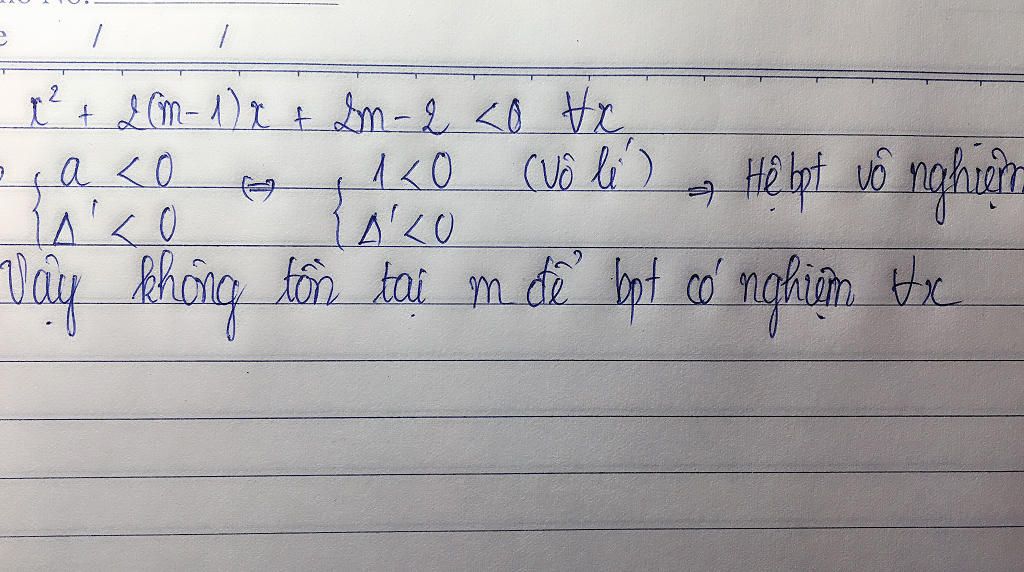 No.
/ /
x² + 2(m-1)x + 2m - 2 < 0 ∀x
{ a < 0 ⇔ { 1 < 0 (vô lí) ⇒ Hệ bpt vô nghiệm
{ Δ' < 0 { Δ' < 0
Vậy không tồn tại m để bpt có nghiệm ∀x